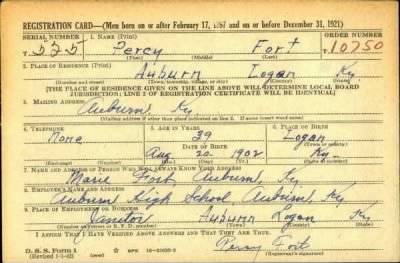 REGISTRATION CARD—(Men born on or after February 17, 1897 and on or before December 31, 1921)
SERIAL NUMBER 1. NAME (Print) ORDER NUMBER
T 525 Percy Fort 10750
(First) (Middle) (Last)
2. PLACE OF RESIDENCE (Print)
Auburn Logan Ky
(Number and street) (Town, township, village, or city) (County) (State)
[THE PLACE OF RESIDENCE GIVEN ON THE LINE ABOVE WILL DETERMINE LOCAL BOARD
JURISDICTION; LINE 2 OF REGISTRATION CERTIFICATE WILL BE IDENTICAL]
3. MAILING ADDRESS
Auburn, Ky
[Mailing address if other than place indicated on line 2. If same insert word same]
4. TELEPHONE 5. AGE IN YEARS 6. PLACE OF BIRTH
None 39 Logan
DATE OF BIRTH (Town or county)
Aug 20 1902 Ky
(Exchange) (Number) (Mo.) (Day) (Yr.) (State or country)
7. NAME AND ADDRESS OF PERSON WHO WILL ALWAYS KNOW YOUR ADDRESS
Marie Fort, Auburn, Ky
8. EMPLOYER'S NAME AND ADDRESS
Auburn High School, Auburn, Ky
9. PLACE OF EMPLOYMENT OR BUSINESS
Janitor Auburn Logan Ky
(Number and street or R. F. D. number) (Town) (County) (State)
I AFFIRM THAT I HAVE VERIFIED ABOVE ANSWERS AND THAT THEY ARE TRUE.
D. S. S. Form 1
(Revised 1-1-42)
Percy Fort